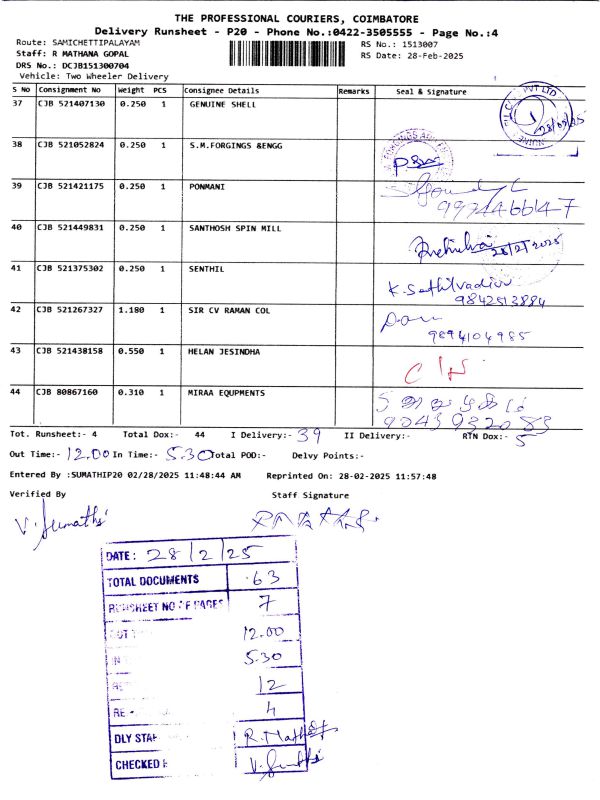 THE PROFESSIONAL COURIERS, COIMBATORE
Delivery Runsheet - P20 - Phone No.:0422-3505555 - Page No.:4
Route: SAMICHETTIPALAYAM
RS No.: 1513007
Staff: R MATHANA GOPAL
RS Date: 28-Feb-2025
DRS No.: DCJB151300704
Vehicle: Two Wheeler Delivery
S No Consignment No Weight PCS Consignee Details Remarks Seal & Signature
37 CJB 521407130 0.250 1 GENUINE SHELL
38 CJB 521052824 0.250 1 S.M.FORGINGS &ENGG
39 CJB 521421175 0.250 1 PONMANI
40 CJB 521449831 0.250 1 SANTHOSH SPIN MILL 28/2/2025
41 CJB 521375302 0.250 1 SENTHIL
9842513884
42 CJB 521267327 1.180 1 SIR CV RAMAN COL
9894104985
43 CJB 521438158 0.550 1 HELAN JESINDHA
44 CJB 80867160 0.310 1 MIRAA EQUPMENTS
Tot. Runsheet:- 4 Total Dox:- 44 I Delivery:- 39 II Delivery:- RTN Dox:- 5
Out Time:- 12.00 In Time:- 5.30 Total POD:- Delvy Points:-
Entered By :SUMATHIP20 02/28/2025 11:48:44 AM Reprinted On: 28-02-2025 11:57:48
Verified By Staff Signature
V. Sumathi
DATE: 28/2/25
TOTAL DOCUMENTS 63
RUNSHEET NO OF PAGES 7
OUT 12.00
IN 5.30
12
RE 4
DLY STAF
CHECKED